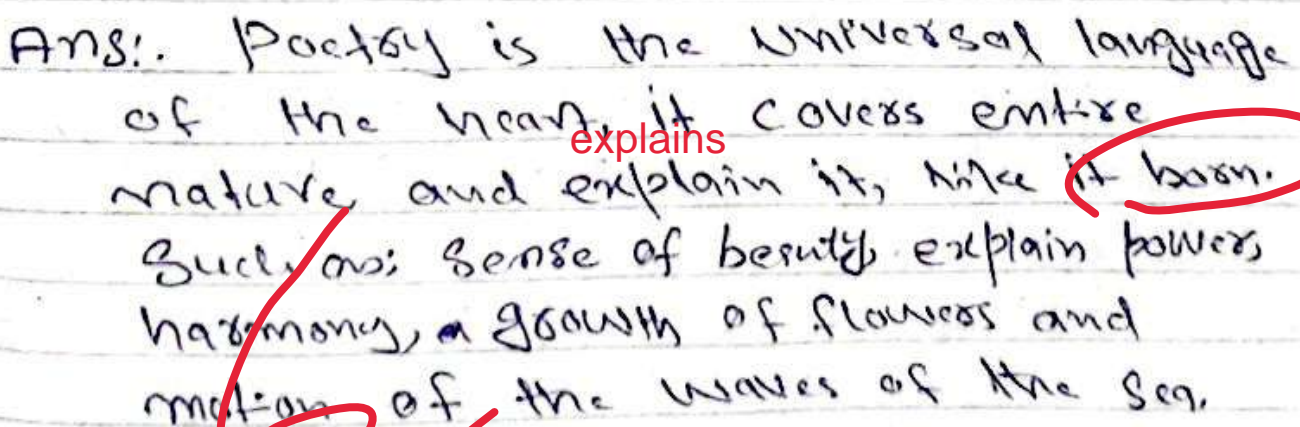 Ans:. Poetry is the universal language
of the heart, it covers entire
explains
nature and explain it, like it born.
Such as: Sense of beauty, explain power,
harmony, a growth of flowers and
motion of the waves of the Sea.